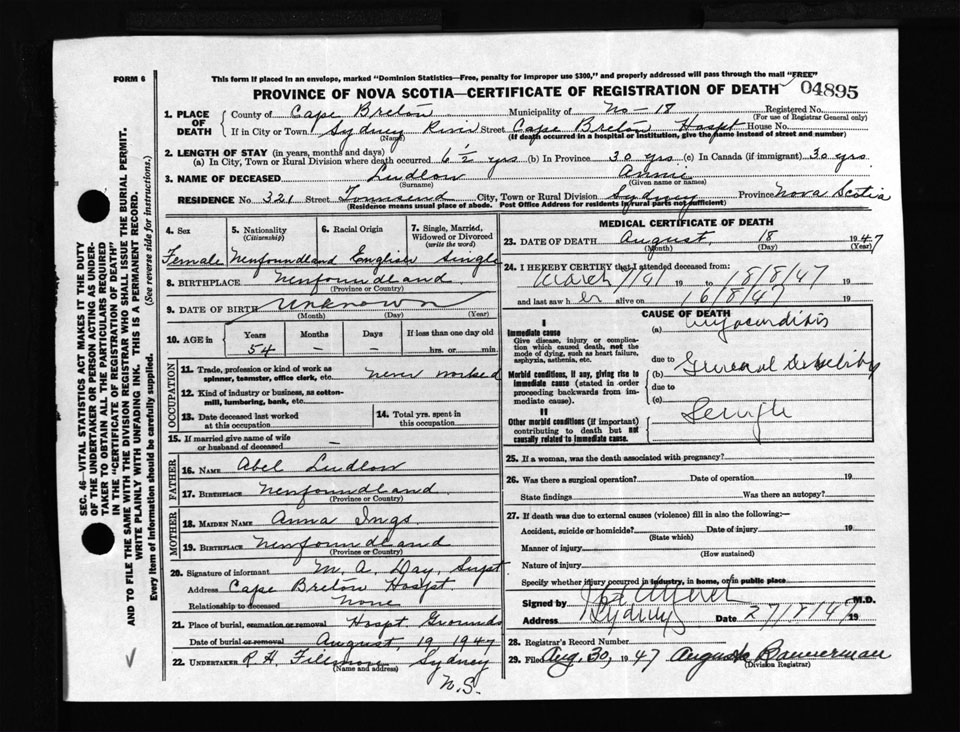 FORM 6
This form if placed in an envelope, marked "Dominion Statistics—Free, penalty for improper use $300," and properly addressed will pass through the mail "FREE"
PROVINCE OF NOVA SCOTIA—CERTIFICATE OF REGISTRATION OF DEATH 04895
1. PLACE OF DEATH
County of Cape Breton Municipality of No-18 Registered No.
(For use of Registrar General only)
If in City or Town Sydney River Street Cape Breton Hospt House No.
(Name) (If death occurred in a hospital or institution, give the name instead of street and number)
2. LENGTH OF STAY (in years, months and days)
(a) In City, Town or Rural Division where death occurred 6½ yrs (b) In Province 30 yrs. (c) In Canada (if immigrant) 30 yrs.
3. NAME OF DECEASED Ludlow Annie
(Surname) (Given name or names)
RESIDENCE No. 321 Street Townsend City, Town or Rural Division Sydney Province Nova Scotia
(Residence means usual place of abode. Post Office Address for residents in rural parts not sufficient)
4. Sex Female
5. Nationality (Citizenship) Newfoundland
6. Racial Origin English
7. Single, Married, Widowed or Divorced (write the word) Single
8. BIRTHPLACE Newfoundland
(Province or Country)
9. DATE OF BIRTH Unknown
(Month) (Day) (Year)
10. AGE in Years Months Days If less than one day old
54 – hrs. or min.
OCCUPATION
11. Trade, profession or kind of work as spinner, teamster, office clerk, etc. Never worked
12. Kind of industry or business, as cotton-mill, lumbering, bank, etc.
13. Date deceased last worked at this occupation
14. Total yrs. spent in this occupation
15. If married give name of wife or husband of deceased –
FATHER
16. NAME Abel Ludlow
17. BIRTHPLACE Newfoundland
(Province or Country)
MOTHER
18. MAIDEN NAME Anna Ings
19. BIRTHPLACE Newfoundland
(Province or Country)
20. Signature of informant M. A. Day, Supt
Address Cape Breton Hospt.
Relationship to deceased None
21. Place of burial, cremation or removal Hospt. Grounds
Date of burial or removal August, 19 1947
22. UNDERTAKER R. H. Fillmore Sydney
(Name and address)
N.S.
MEDICAL CERTIFICATE OF DEATH
23. DATE OF DEATH August, 18 1947
(Month) (Day) (Year)
24. I HEREBY CERTIFY that I attended deceased from:
March / 41 19 to 18/8/47 19
and last saw her alive on 16/8/47 19
CAUSE OF DEATH
I
Immediate cause
Give disease, injury or complication which caused death, not the mode of dying, such as heart failure, asphyxia, asthenia, etc.
(a) Myocarditis
due to
Morbid conditions, if any, giving rise to immediate cause (stated in order proceeding backwards from immediate cause).
(b) General Debility
due to
(c)
II
Other morbid conditions (if important) contributing to death but not causally related to immediate cause.
25. If a woman, was the death associated with pregnancy?
26. Was there a surgical operation? Date of operation 19
State findings Was there an autopsy?
27. If death was due to external causes (violence) fill in also the following:—
Accident, suicide or homicide? Date of injury 19
(State which)
Manner of injury
(How sustained)
Nature of injury
Specify whether injury occurred in industry, in home, or in public place
Signed by M.D.
Sydney Date 27/8/47 19
28. Registrar's Record Number
29. Filed Aug. 30, 1947 Bannerman
(Division Registrar)
SEC. 46—VITAL STATISTICS ACT MAKES IT THE DUTY
OF THE UNDERTAKER OR PERSON ACTING AS UNDER-
TAKER TO OBTAIN ALL THE PARTICULARS REQUIRED
IN THE "CERTIFICATE OF REGISTRATION OF DEATH"
AND TO FILE THE SAME WITH THE DIVISION REGISTRAR WHO SHALL ISSUE THE BURIAL PERMIT.
WRITE PLAINLY WITH UNFADING INK. THIS IS A PERMANENT RECORD.
Every item of information should be carefully supplied. (See reverse side for instructions.)